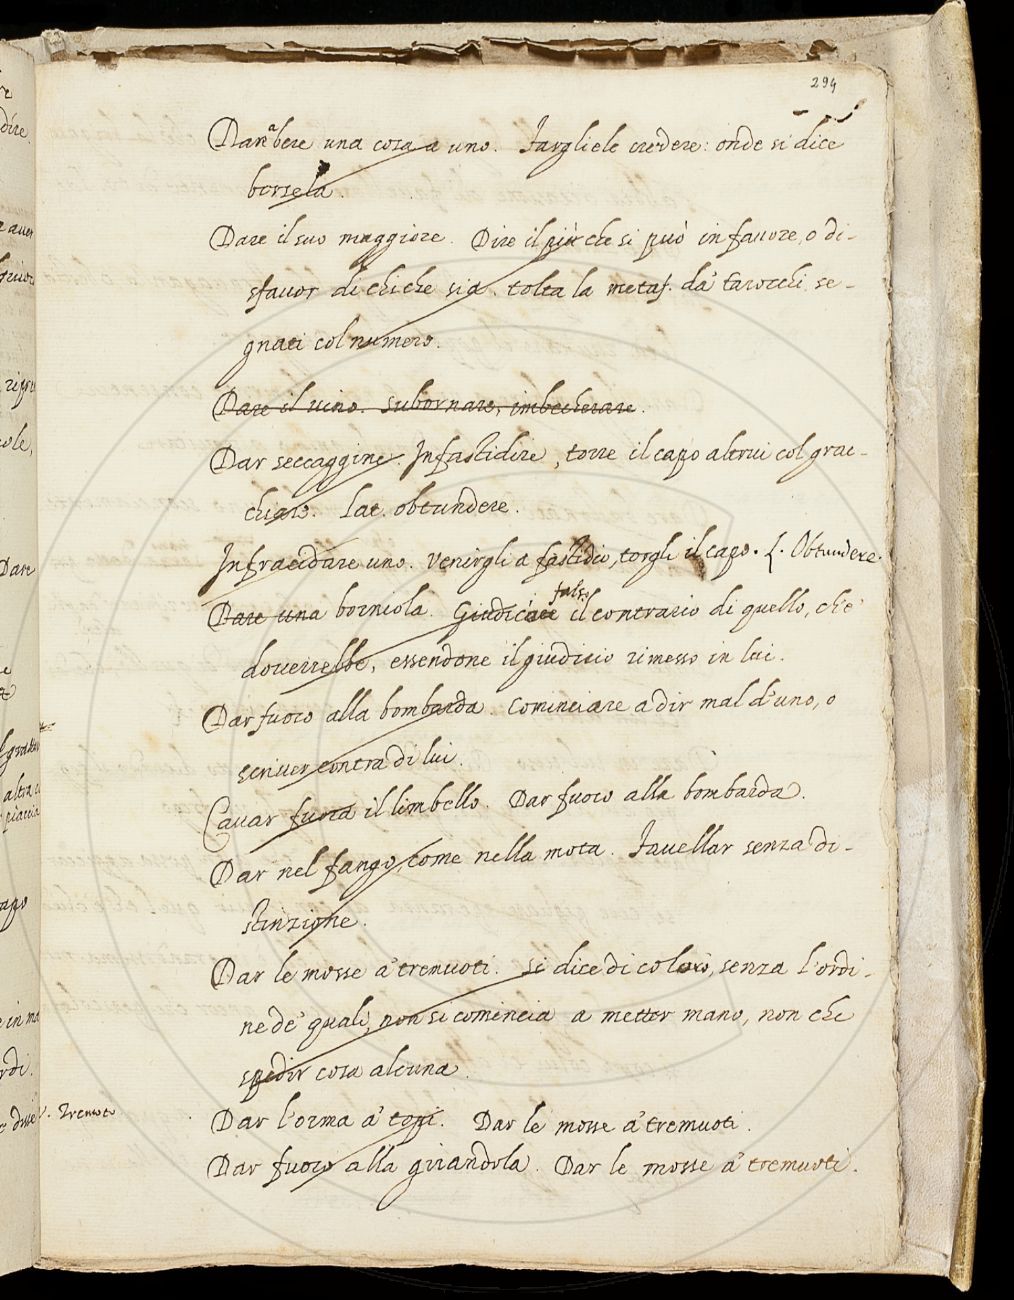 294
Dare à bere una cosa a uno. Fargliele credere: onde si dice
bersela.
Dare il suo maggiore. Dire il più che si può in fauore, o di-
sfauor di chi che sia. tolta la metaf. da' tarocchi se-
gnati col numero.
Dare il uino. Subornare, imbecherare.
Dar seccaggine. Infastidire, torre il capo altrui col grac-
chiare. Lat. obtundere.
Infracidare uno. Venirgli a fastidio, torgli il capo. L. Obtundere.
Dare una borniola. Giudicare fals. il contrario di quello, che
douerrebbe, essendone il giudicio rimesso in lui.
Dar fuoco alla bombarda. Cominciare a dir mal d'uno, o
scriuer contra di lui.
Cauar fuora il limbello. Dar fuoco alla bombarda.
Dar nel fango, come nella mota. Fauellar senza di-
stinzione.
Dar le mosse a' tremuoti. Si dice di coloro, senza l'ordi-
ne de' quali, non si comincia a metter mano, non che
spedir cosa alcuna.
v. Tremoto
Dar l'orma a' topi. Dar le mosse a' tremuoti.
Dar fuoco alla girandola. Dar le mosse a' tremuoti.